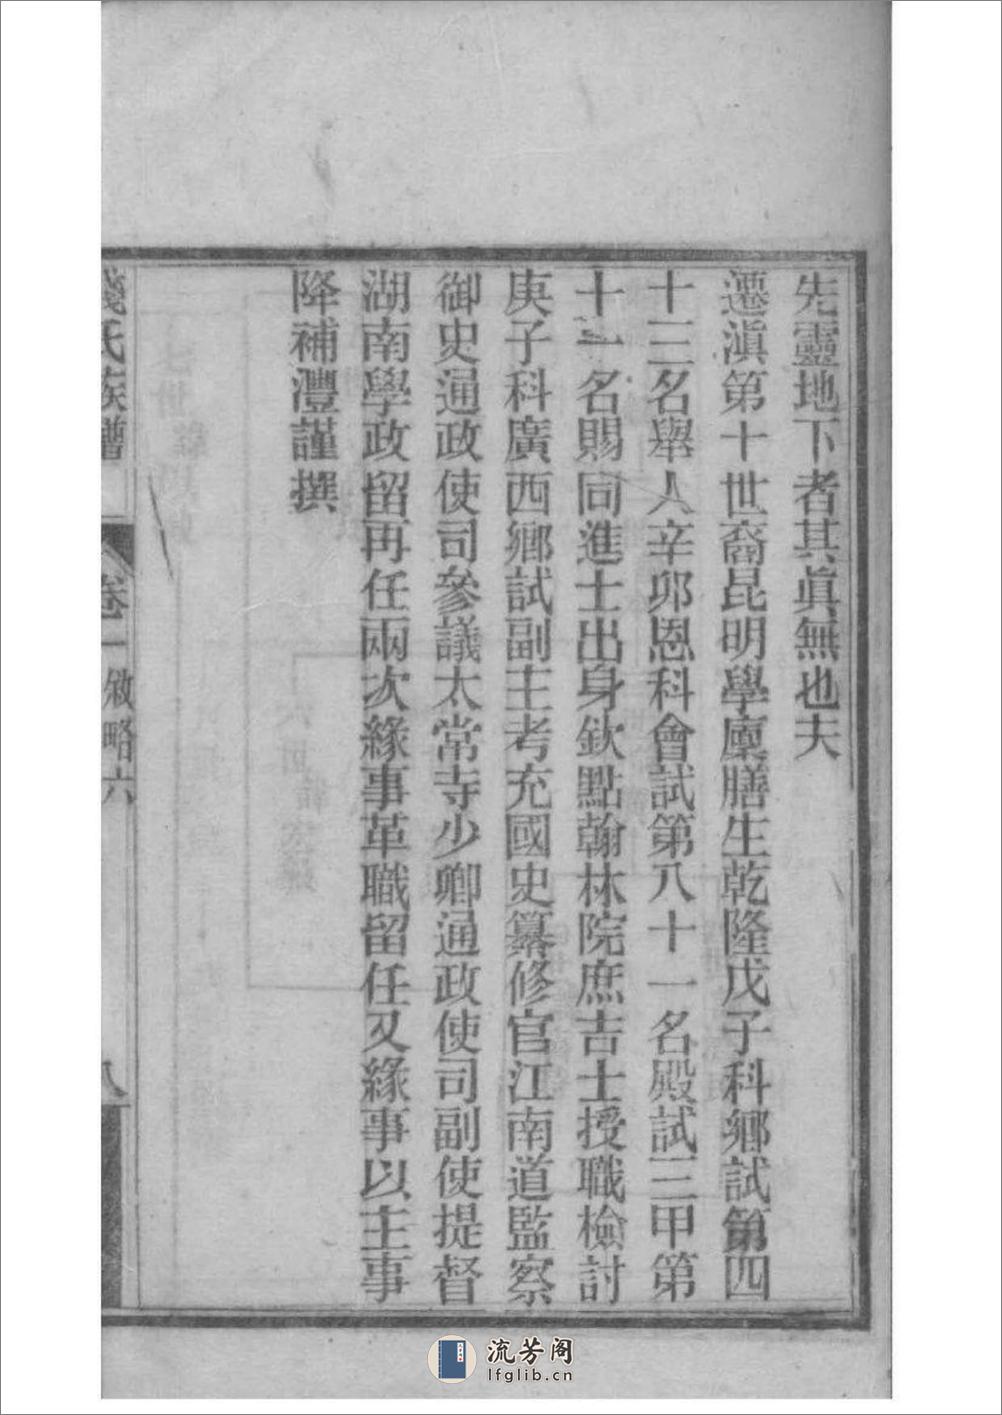 先靈地下者其眞無也夫
遷滇第十世裔昆明學廩膳生乾隆戊子科鄉試第四
十三名舉人辛卯恩科會試第八十一名殿試三甲第
十一名賜同進士出身欽點翰林院庶吉士授職檢討
庚子科廣西鄉試副主考充國史纂修官江南道監察
御史通政使司參議太常寺少卿通政使司副使提督
湖南學政留再任兩次緣事革職留任又緣事以主事
降補灃謹撰
錢氏族譜 卷一敘略六 八
流芳阁
lfglib.cn